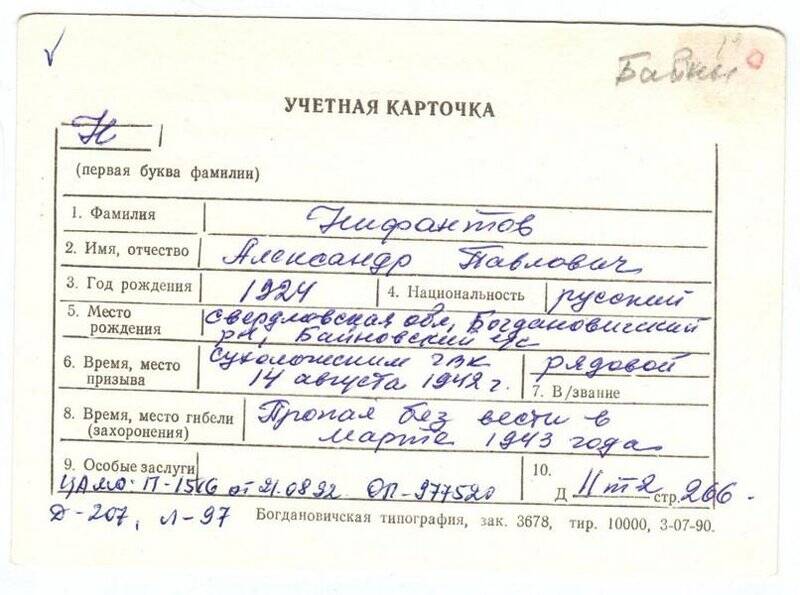 Байны
УЧЕТНАЯ КАРТОЧКА
Н
(первая буква фамилии)
1. Фамилия Нифантов
2. Имя, отчество Александр Павлович
3. Год рождения 1924 4. Национальность русский
5. Место рождения Свердловская обл, Богдановичский
р-н, Байновский с/с
6. Время, место призыва Сухоложским ГВК
14 августа 1942 г.
рядовой
7. В/звание
8. Время, место гибели (захоронения) Пропал без вести в
марте 1943 года
9. Особые заслуги
10.
ЦАМО: П- от 21.08.92. ОП-977520
Д II т 2 стр. 266.
Д-207, Л-97
Богдановичская типография, зак. 3678, тир. 10000, 3-07-90.